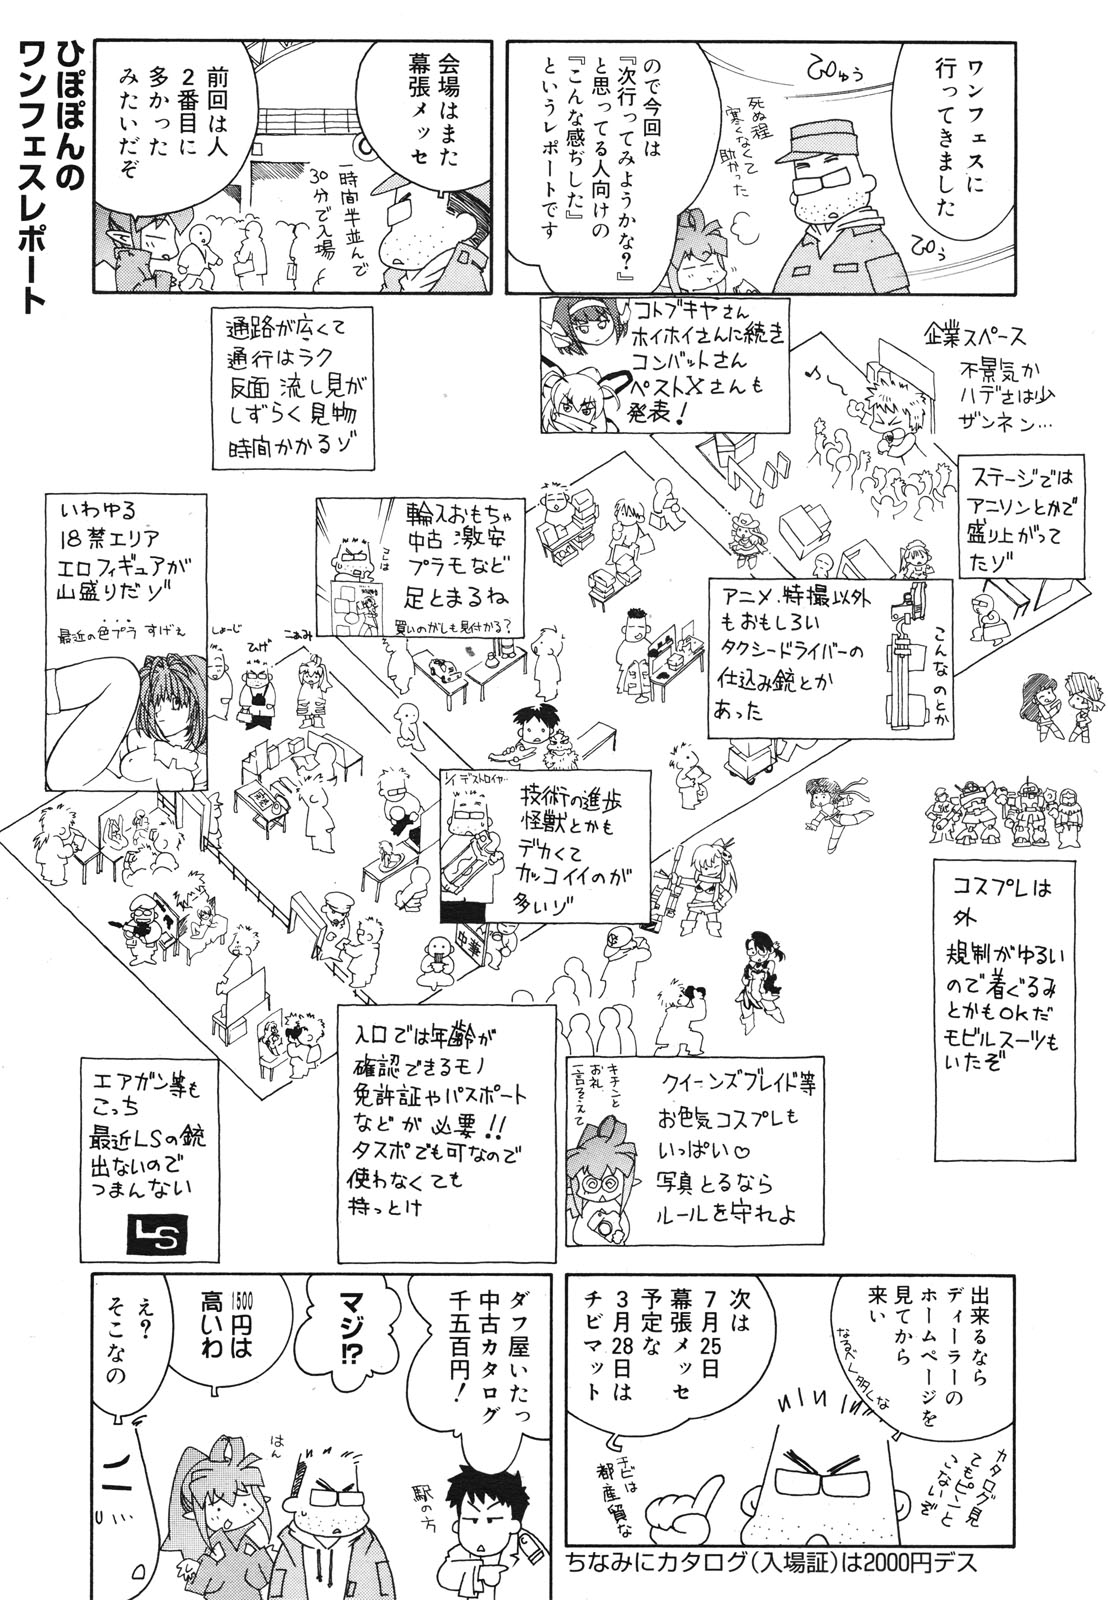 ひぽぽんの
ワンフェスレポート
ワンフェスに
行ってきました
ぴゅう
ぴゅう
死ぬ程
寒くなくて
助かった
ので今回は
『次行ってみようかな?』
と思ってる人向けの
『こんな感ぢした』
というレポートです
会場はまた
幕張メッセ
一時間半並んで
30分で入場
前回は人
2番目に
多かった
みたいだぞ
企業スペース
不景気か
ハデさは少
ザンネン…
コトブキヤさん
ホイホイさんに続き
コンバットさん
ペストXさんも
発表!
通路が広くて
通行はラク
反面 流し見が
しずらく見物
時間かかるゾ
ステージでは
アニソンとかで
盛り上がって
たゾ
アニメ、特撮以外
もおもしろい
タクシードライバーの
仕込み銃とか
あった
こんなのとか
輸入おもちゃ
中古 激安
プラモなど
足とまるね
買いのがしも見付かる?
コレは
いわゆる
18禁エリア
エロフィギュアが
山盛りだゾ
最近の色プラ すげぇ
しょーじ
ひげ
こあみ
1/1デストロイヤ…
技術の進歩
怪獣とかも
デカくて
カッコイイのが
多いゾ
中華
コスプレは
外
規制がゆるい
ので着ぐるみ
とかもOKだ
モビルスーツも
いたぞ
クイーンズブレイド等
お色気コスプレも
いっぱい♡
写真とるなら
ルールを守れよ
キチンと
お礼
一言そえて
入口では年齢が
確認できるモノ
免許証やパスポート
などが 必要!!
タスポでも可なので
使わなくても
持っとけ
エアガン等も
こっち
最近LSの銃
出ないので
つまんない
LS
出来るなら
ディーラーの
ホームページを
見てから
来い
なるべく多くな
カタログ見
てもピンと
こないぞ
次は
7月25日
幕張メッセ
予定な
3月28日は
チビマット
チビは
都産貿な
ちなみにカタログ(入場証)は2000円デス
ダフ屋いたっ
中古カタログ
千五百円!
駅の方
マジ!?
1500円は
高いわ
はん
え?
そこなの